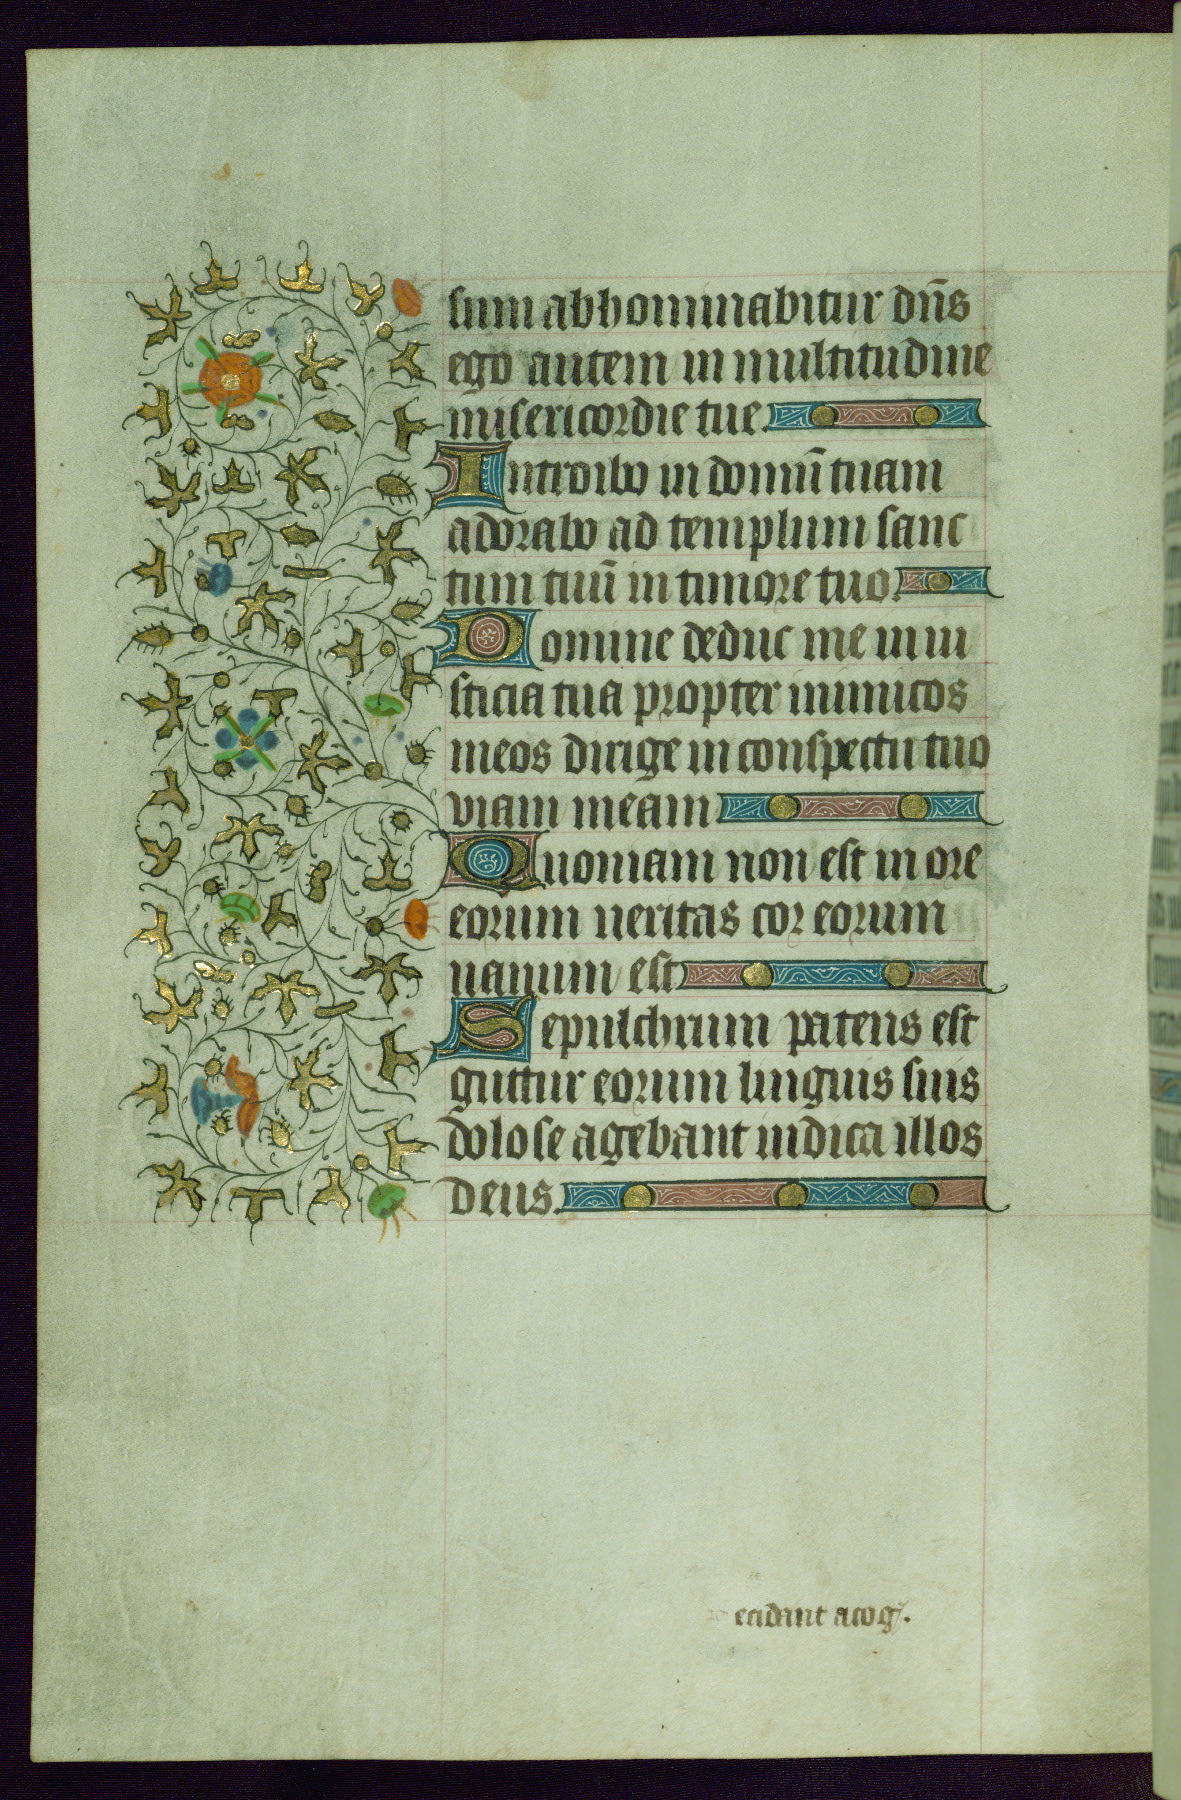 sum abhominabitur dn̄s
ego autem in multitudine
misericordie tue.
Introibo in domū tuam
adorabo ad templum sanc
tum tuū in timore tuo.
Domine deduc me in iu
sticia tua propter inimicos
meos dirige in conspectu tuo
viam meam
Quoniam non est in ore
eorum ueritas cor eorum
uanum est
Sepulchrum patens est
guttur eorum linguis suis
dolose agebant iudica illos
deus.
cidant a cog.